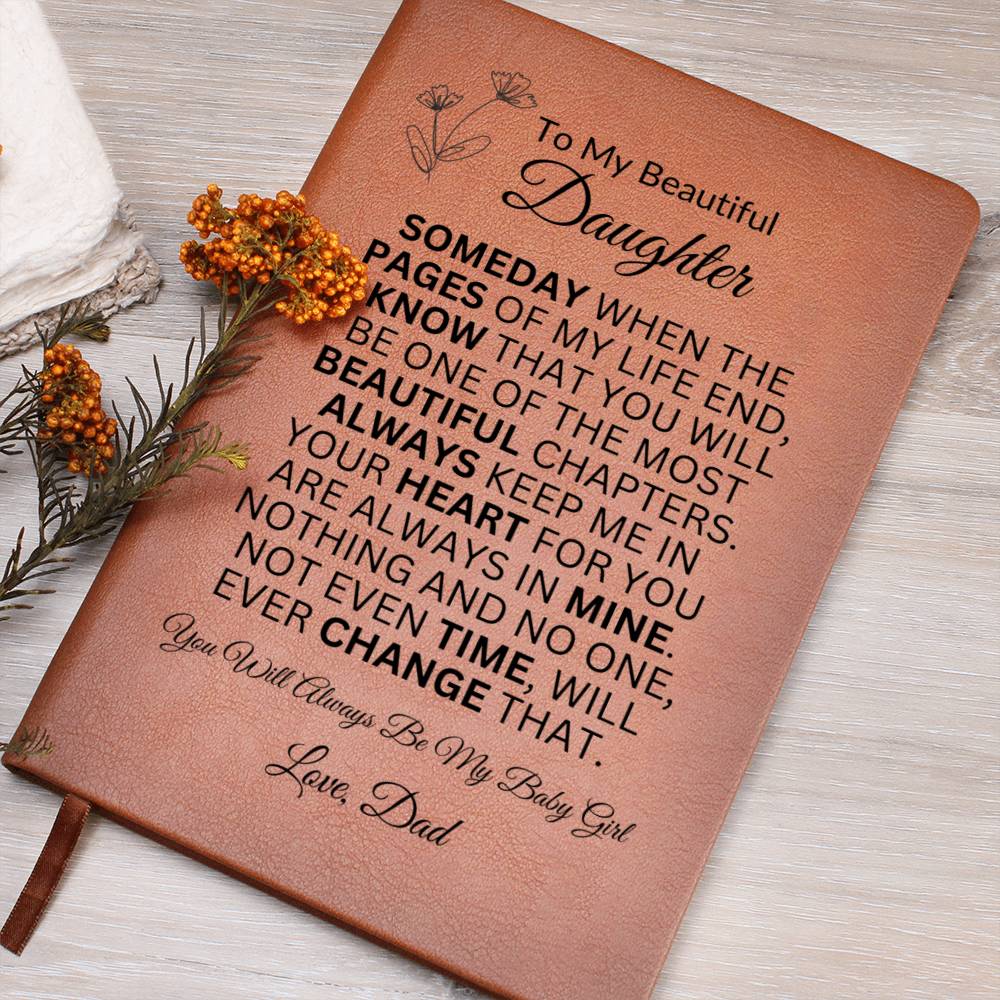 To My Beautiful
Daughter
SOMEDAY WHEN THE
PAGES OF MY LIFE END,
KNOW THAT YOU WILL
BE ONE OF THE MOST
BEAUTIFUL CHAPTERS.
ALWAYS KEEP ME IN
YOUR HEART FOR YOU
ARE ALWAYS IN MINE.
NOTHING AND NO ONE,
NOT EVEN TIME, WILL
EVER CHANGE THAT.
You Will Always Be My Baby Girl
Love, Dad